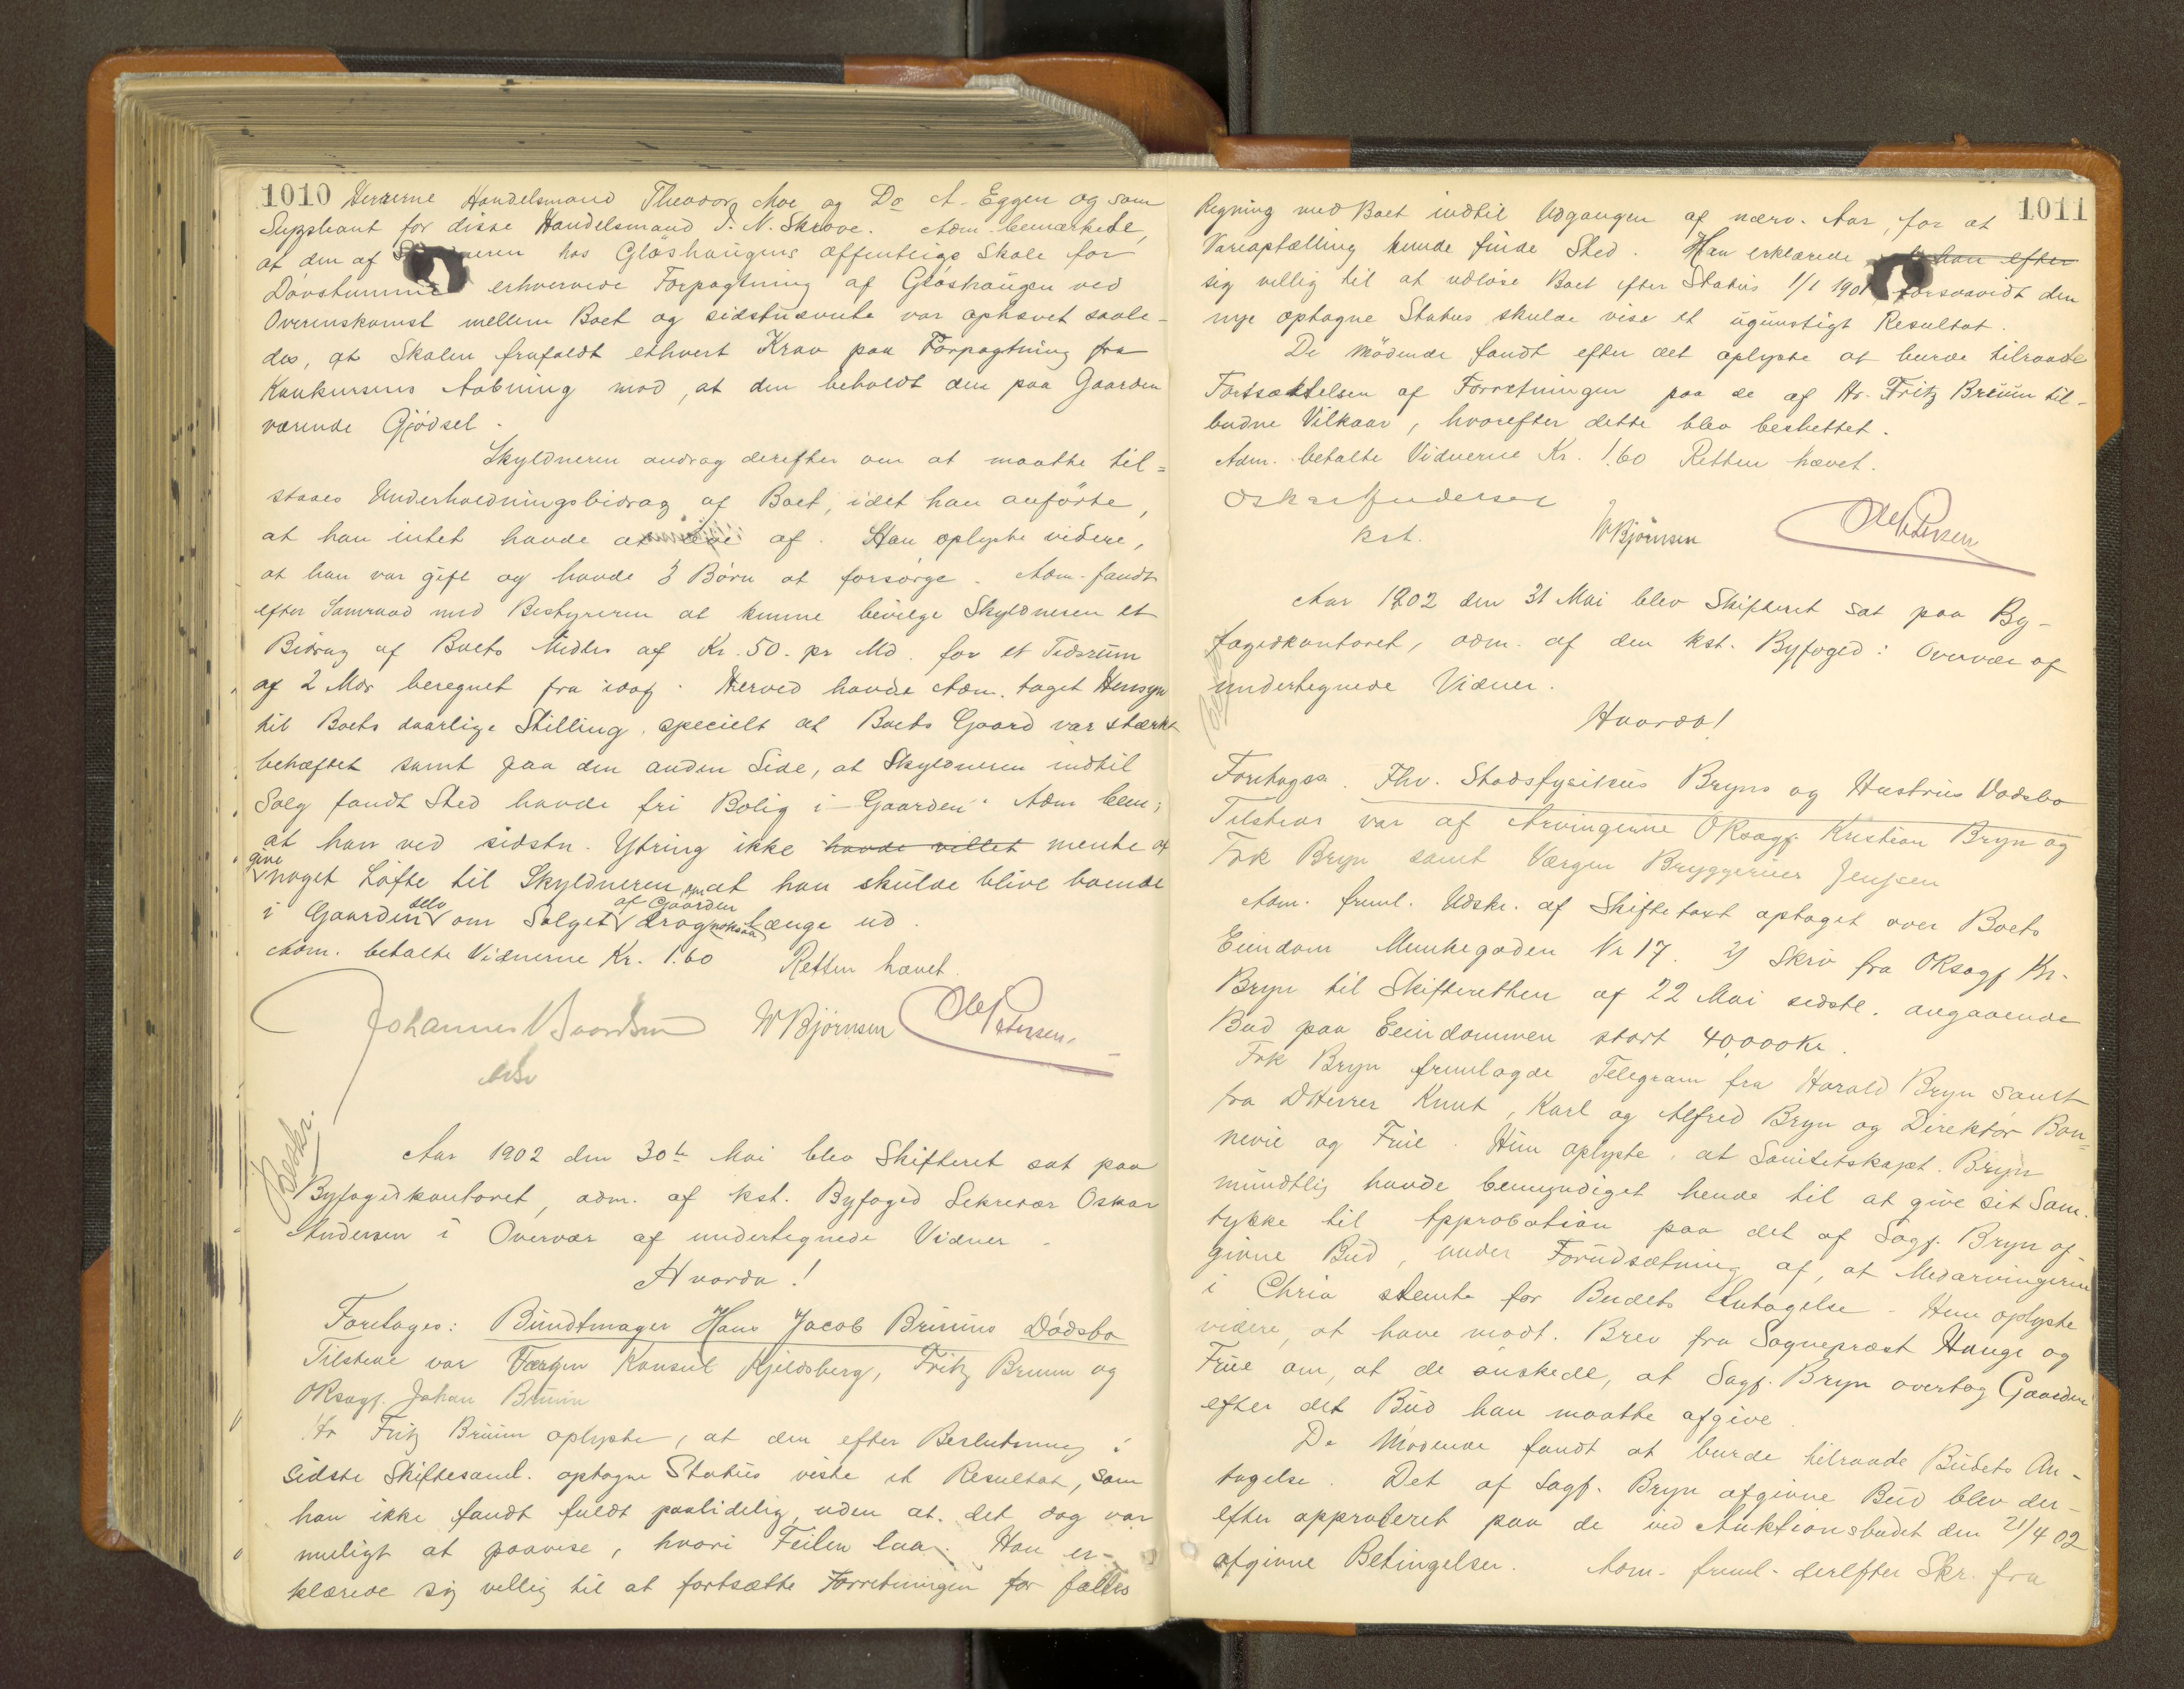 1010 Herrerne Handelsmand Theodor Moe og Do A. Eggen og som
Suppleant for disse Handelsmand I. N. Skrove. Adm. bemærkede,
at den af hos Gløshaugens offentlige Skole for
Døvstumme erhvervede Forpagtning af Gløshaugen ved
Overenskomst mellem Boet og sidstnævnte var ophævet saale-
des, at Skolen frafaldt ethvert Krav paa Forpagtning fra
Konkursens Aabning mod, at den beholdt den paa Gaarden
værende Gjødsel.
Skyldneren androg derefter om at maatte til-
staaes Underholdningsbidrag af Boet, idet han anførte,
at han intet havde at leve af. Han oplyste videre,
at han var gift og havde 3 Børn at forsørge. Adm. fandt
efter Samraad med Bestyreren at kunne bevilge Skyldneren et
Bidrag af Boets Midler af Kr. 50. pr Md. for et Tidsrum
af 2 Mdr beregnet fra idag. Herved havde Adm. taget Hensyn
til Boets daarlige Stilling, specielt at Boets Gaard var stærkt
behæftet samt paa den anden Side, at Skyldneren indtil
Salg fandt Sted havde fri Bolig i Gaarden. Adm bem;
at han ved sidstn. Ytring ikke havde villet mente at
give noget Løfte til Skyldneren om at han skulde blive boende
i Gaarden selv om Salget af Gaarden drog noksaa længe ud.
Adm. betalte Vidnerne Kr. 1.60 Retten hævet.
Johannes W Bjørnsen Ole Petersen.
Beskr.
Aar 1902 den 30te Mai blev Skifteret sat paa
Byfogedkontoret, adm. af kst. Byfoged Sekretær Oskar
Andersen i Overvær af undertegnede Vidner.
Hvorda!
Foretoges: Bundtmager Hans Jacob Bruuns Dødsbo
Tilstede var Værgen Konsul Kjeldsberg, Fritz Bruun og
OKsagf. Johan Bruun
Hr Fritz Bruun oplyste, at den efter Beslutning i
sidste Skiftesaml. optagne Status viste et Resultat, som
han ikke fandt fuldt paalidelig, uden at det dog var
muligt at paavise, hvori Feilen laa. Han er-
klærede sig villig til at fortsætte Forretningen for fælles
1011
Regning med Boet indtil Udgangen af nærv. Aar, for at
Vareoptælling kunde finde Sted. Han erklærede at han efter
sig villig til at udløse Boet efter Status 1/1 1901 forsaavidt den
nye optagne Status skulde vise et ugunstigt Resultat.
De Mødende fandt efter det oplyste at burde tilraade
Fortsættelsen af Forretningen paa de af Hr. Fritz Bruun til-
budne Vilkaar, hvorefter dette blev besluttet.
Adm. betalte Vidnerne Kr. 1.60 Retten hævet.
Oskar Andersen
kst. W Bjørnsen Ole Petersen
Aar 1902 den 31 Mai blev Skifteret sat paa By-
fogedkontoret, adm. af den kst. Byfoged i Overvær af
undertegnede Vidner.
Hvorda!
Foretoges. Fhv. Stadsfysikus Bryns og Hustrus Dødsbo
Tilstede var af Arvingerne OKsagf. Kristian Bryn og
Frk Bryn samt Værgen Bryggerieier Jenssen
Adm. freml. Udskr. af Skiftetaxt optaget over Boets
Eiendom Munkegaden Nr 17. 2) Skriv fra OKsagf Kr.
Bryn til Skifteretten af 22 Mai sidstl. angaaende
Bud paa Eiendommen stort 40,000 Kr.
Frk Bryn fremlagde Telegram fra Harald Bryn samt
fra DHerrer Knut, Karl og Alfred Bryn og Direktør Bon-
nevie og Frue. Hun oplyste, at Sanitetskapt. Bryn
mundtlig havde bemyndiget hende til at give sit Sam-
tykke til Approbation paa det af Sagf. Bryn af-
givne Bud, under Forudsætning af, at Medarvingerne
i Chria stemte for Budets Antagelse. Hun oplyste
videre, at have modt. Brev fra Sogneprest Hauge og
Frue om, at de ønskede, at Sagf. Bryn overtog Gaarden
efter det Bud han maatte afgive.
De Mødende fandt at burde tilraade Budets An-
tagelse. Det af Sagf. Bryn afgivne Bud blev der-
efter approberet paa de ved Auktionsbudet den 21/4 02
afgivne Betingelser. Adm. freml. derefter Skr. fra